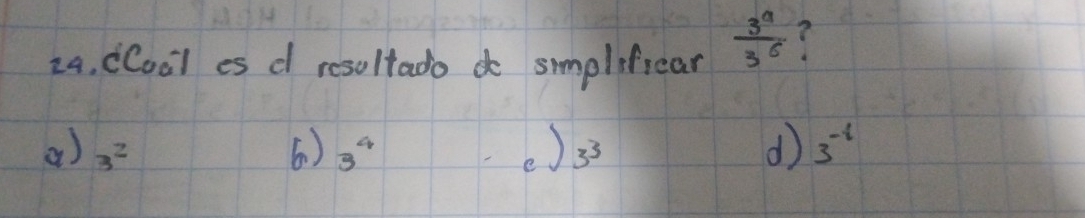 24. ¿Cuál es el resultado de simplificar 3⁹/3⁶?
a) 3² b) 3⁴ c) 3³ d) 3⁻¹